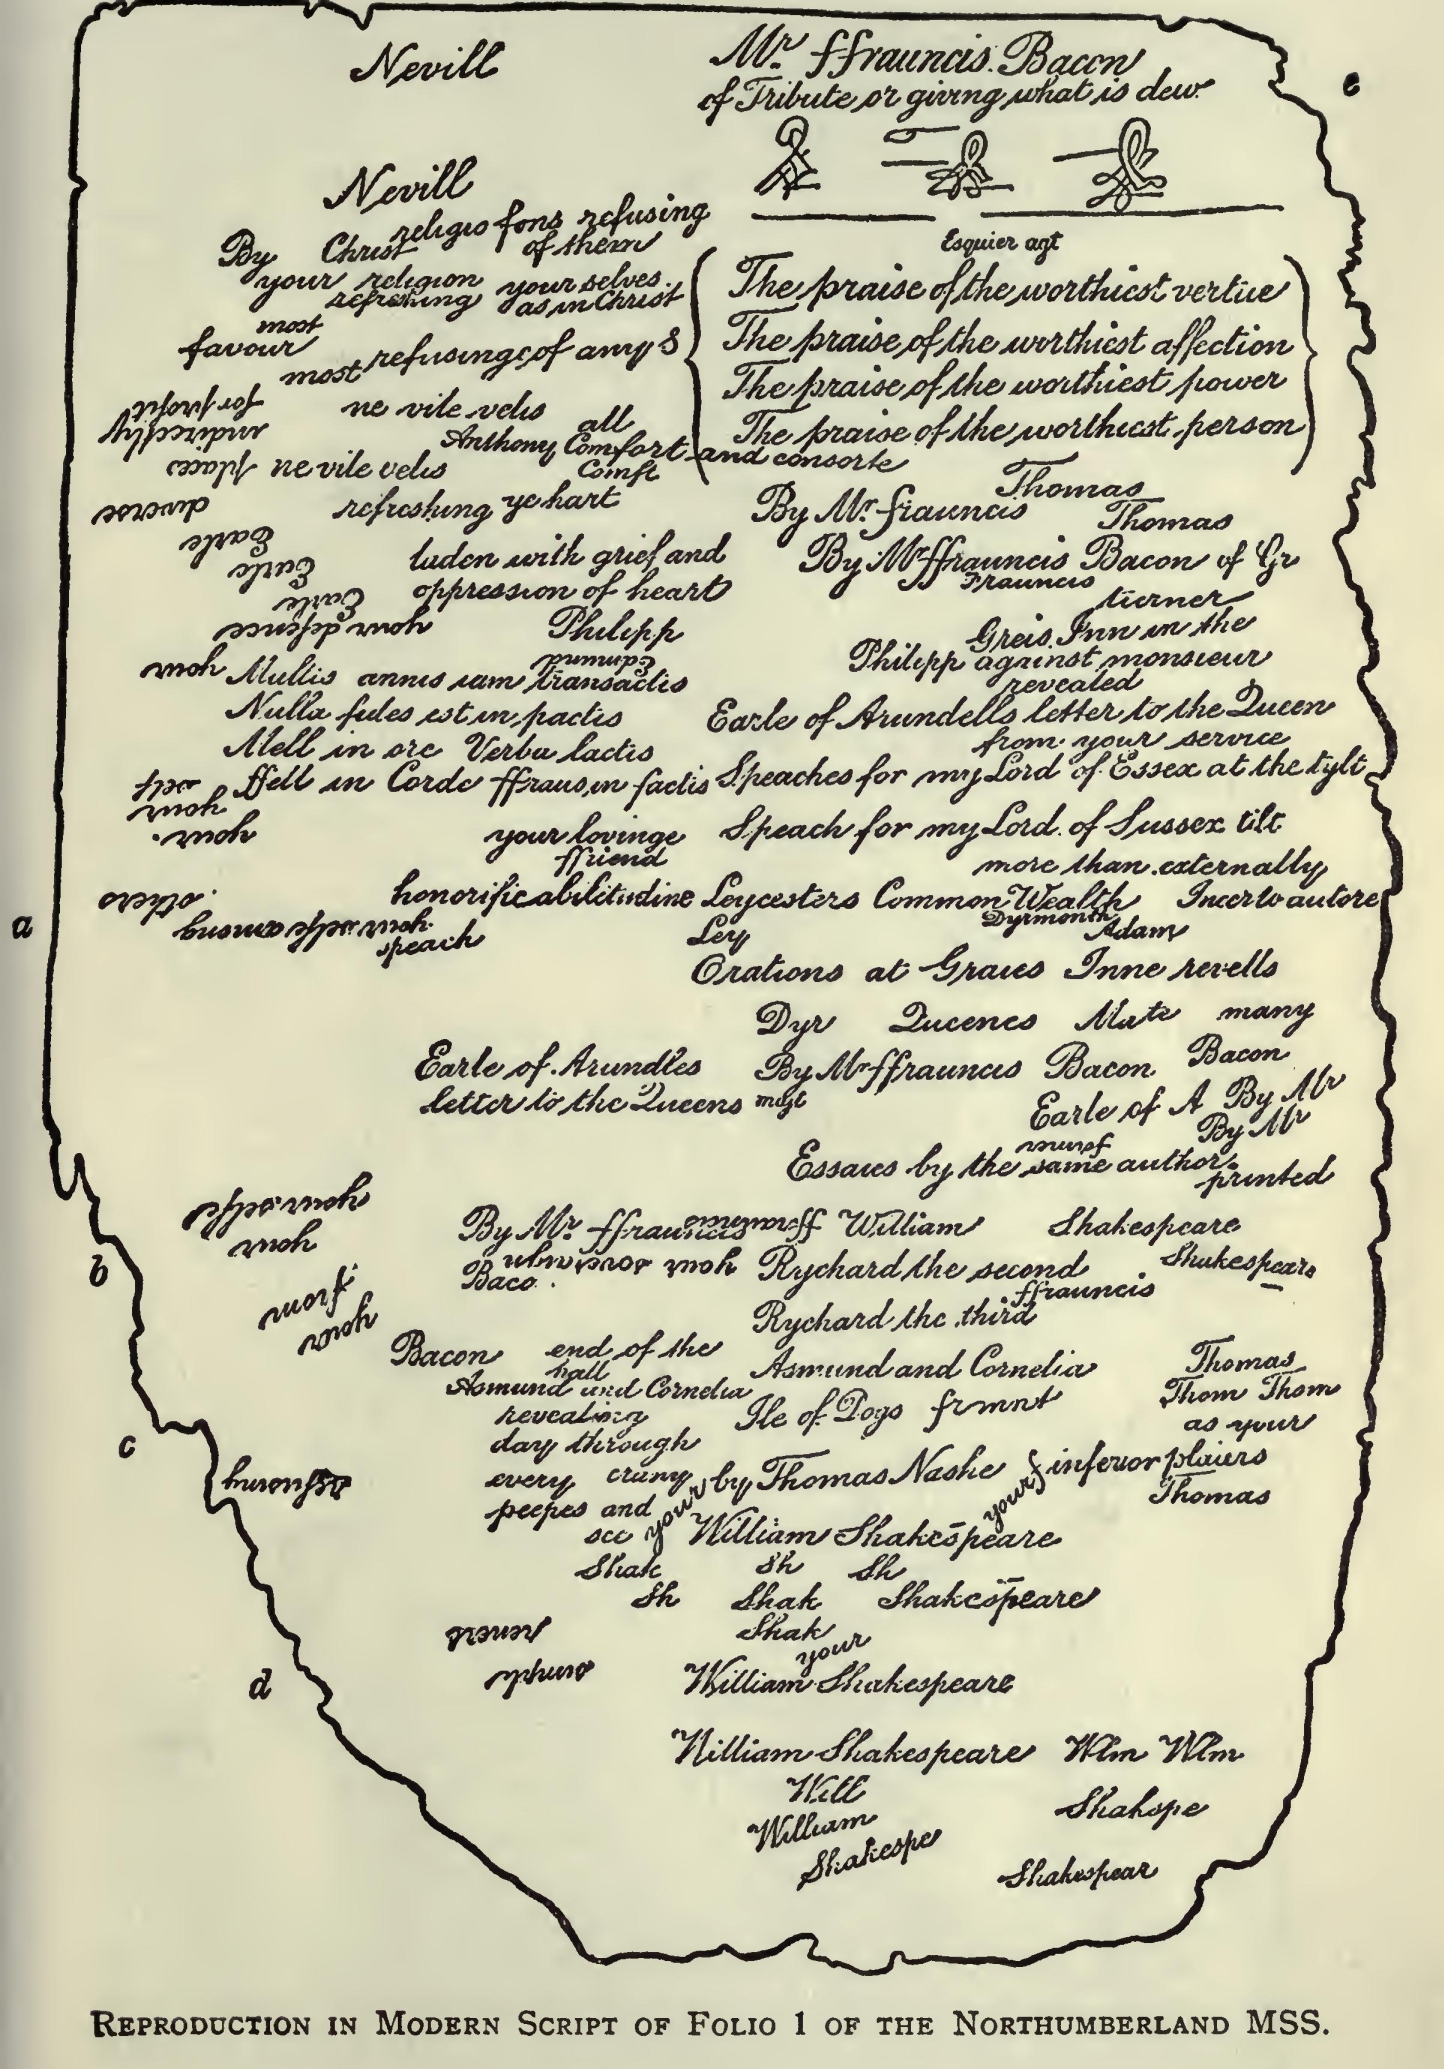 Nevill
Mr. ffrauncis. Bacon
of Tribute or giving what is dew
e
Nevill
religio fons refusing
By Christ of them
Esquier agt
your religion your selves
refreshing as in Christ
The praise of the worthiest vertue
most
favour
The praise of the worthiest affection
most refusinge of any
The praise of the worthiest power
for profit
ne vile velis
all
The praise of the worthiest person
indirectly
Anthony Comfort and consorte
places ne vile velis
Comft
Thomas
diverse
refreshing ye hart
By Mr. ffrauncis Thomas
Earle
luden with grief and
By Mr ffrauncis Bacon of Gr
Earle
Frauncis
Earle
oppression of heart
turner
your defence
Philipp
Greis Inn in the
Edmund
Philipp against monsieur
your Multis annis iam transactis
revealed
Nulla fides est in pactis
Earle of Arundells letter to the Queen
Mell in ore Verba lactis
from your service
self ffell in Corde ffraus in factis
Speaches for my Lord of Essex at the tylt
your
your
your lovinge
Speach for my Lord of Sussex tilt
ffriend
more than externally
others
honorificabilitudine
Leycesters Common Wealth Incerto autore
a
your selfe among
Dyrmonth
speach
Ley
Adam
Orations at Graies Inne revells
Dyr Queenes Mate many
Earle of Arundles
By Mr ffrauncis Bacon Bacon
letter to the Queens matt
Earle of A By Mr
By Mr
Essaies by the same author
printed
your selfe
By Mr. ffrauncis ffrauncis William Shakespeare
your
your soveraign
Rychard the second Shakespeare
b
Baco.
ffrauncis
from
Rychard the third
your
Bacon end of the
hall
Asmund and Cornelia Thomas
Asmund and Cornelia
Thom Thom
revealing
Ile of Dogs frmnt
as your
c
day through
every crany by Thomas Nashe inferior plaiers
peepes and
your
your
Thomas
see
William Shakespeare
Shak Sh Sh
Sh Shak Shakespeare
Shak
your
d
William Shakespeare
William Shakespeare Wlm Wlm
Will
Shakspe
William
Shakespe
Shakespear
REPRODUCTION IN MODERN SCRIPT OF FOLIO 1 OF THE NORTHUMBERLAND MSS.